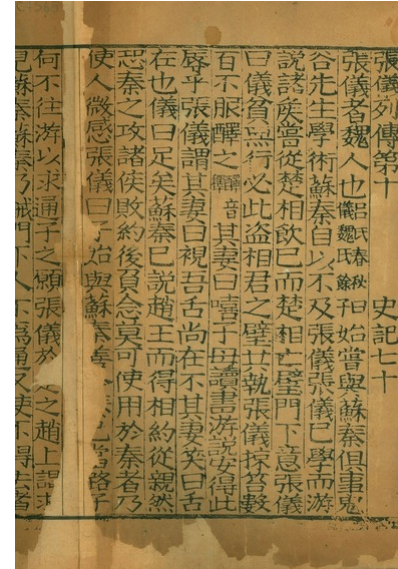 張儀列傳第十 史記七十
張儀者魏人也呂氏春秋儀魏氏餘子曰始嘗與蘇秦俱事鬼
谷先生學術蘇秦自以不及張儀張儀已學而游
說諸矦嘗從楚相飲已而楚相亡璧門下意張儀
曰儀貧無行必此盗相君之璧共執張儀掠笞數
百不服醳之音釋其妻曰嘻子毋讀書游說安得此
辱乎張儀謂其妻曰視吾舌尚在不其妻笑曰舌
在也儀曰足矣蘇秦已說趙王而得相約從親然
恐秦之攻諸侯敗約後負念莫可使用於秦者乃
使人微感張儀曰子始與蘇秦善已當路子
何不往游以求通子之願張儀於之趙上謁求
見蘇秦蘇秦乃誡門下人不為通又使不得去者